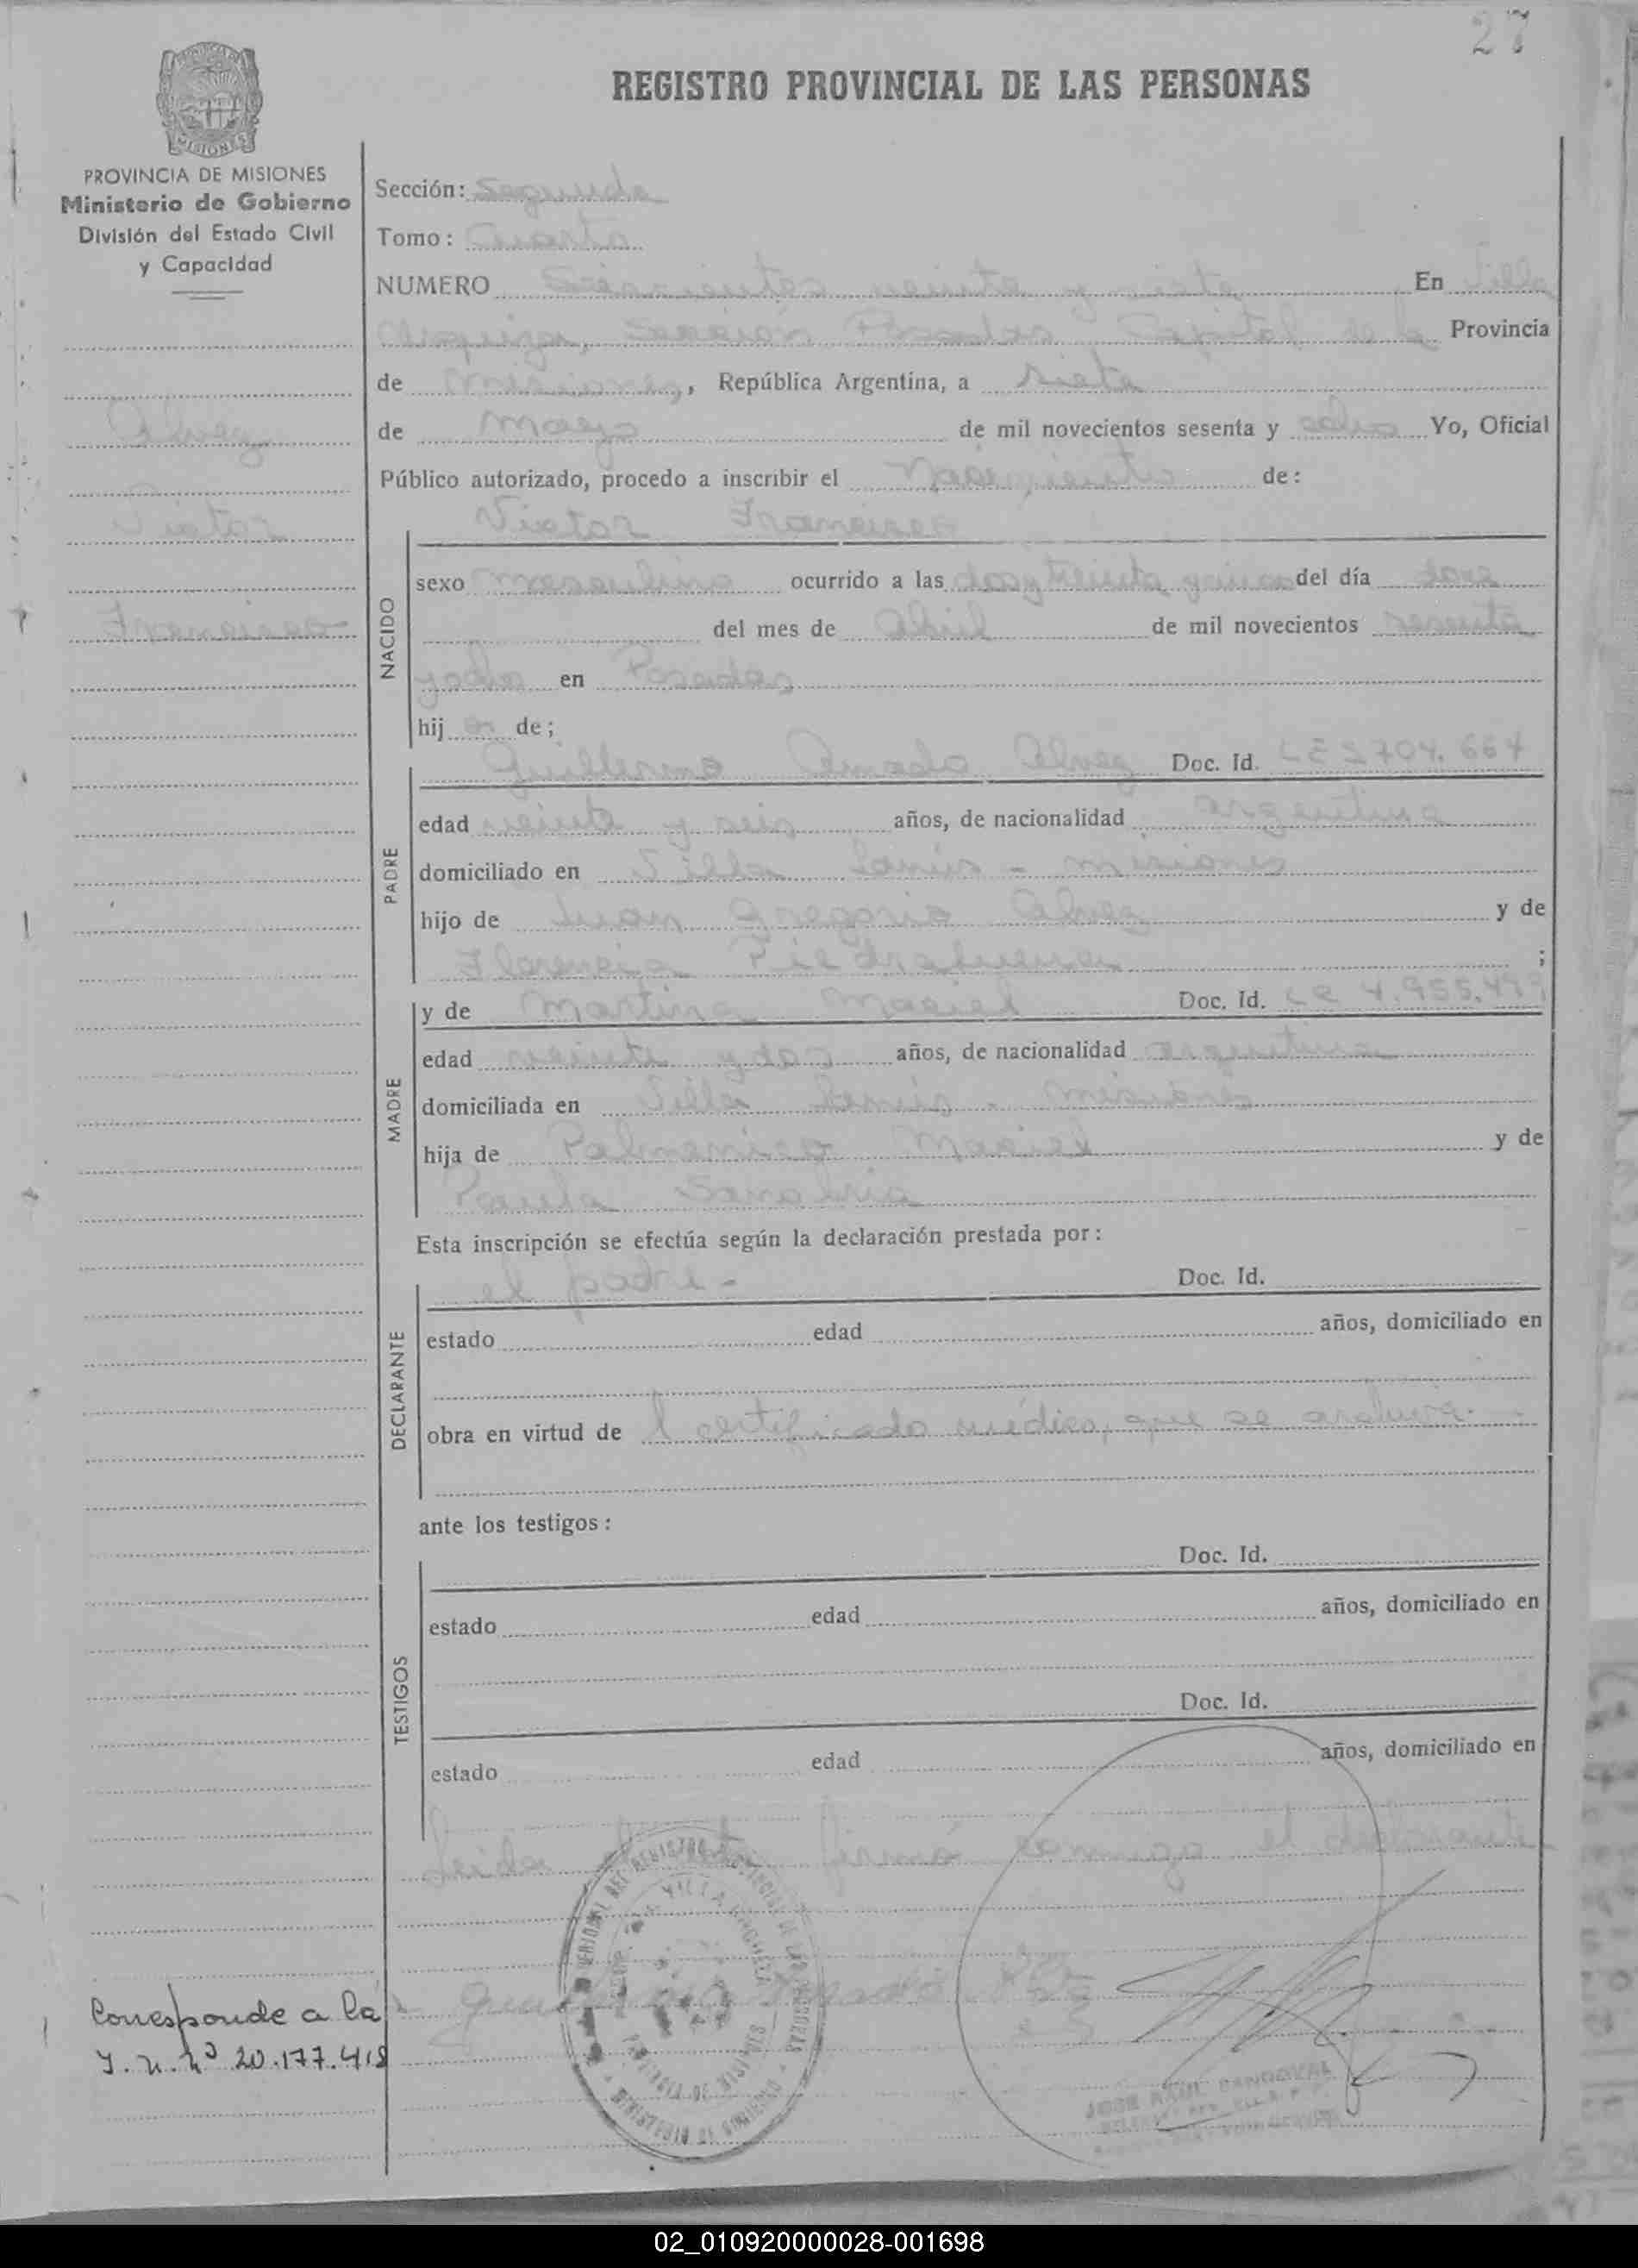 27
REGISTRO PROVINCIAL DE LAS PERSONAS
PROVINCIA DE MISIONES
Ministerio de Gobierno
División del Estado Civil
y Capacidad
Sección: Segunda
Tomo: Cuarto
NUMERO Seiscientos veinte y siete En Villa
Urquiza, Sección Posadas Capital de la Provincia
de Misiones, República Argentina, a siete
de Mayo de mil novecientos sesenta y ocho Yo, Oficial
Público autorizado, procedo a inscribir el Nacimiento de:
Alvez
Victor
Francisco
Victor Francisco
NACIDO
sexo masculino ocurrido a las del día doce
del mes de Abril de mil novecientos sesenta
y ocho en Posadas
hijo de;
PADRE
Guillermo Amado Alvez Doc. Id. LE 2704.664
edad veinte y seis años, de nacionalidad argentina
domiciliado en Villa Lanús - Misiones
hijo de Juan Gregorio Alvez y de
Florencia Piedrabuena ;
MADRE
y de Martina Maciel Doc. Id. LC 4.955.499
edad veinte y dos años, de nacionalidad argentina
domiciliada en Villa Lanús - Misiones
hija de Maciel y de
Paula Sanabria
Esta inscripción se efectúa según la declaración prestada por:
DECLARANTE
el padre - Doc. Id.
estado edad años, domiciliado en
obra en virtud de l certificado médico, que se archiva. -
ante los testigos:
TESTIGOS
Doc. Id.
estado edad años, domiciliado en
Doc. Id.
estado edad años, domiciliado en
Leida firmó conmigo el declarante
Corresponde a la
I. N. Nº 20.177.418
JOSE RAUL SANDOVAL
02_010920000028-001698